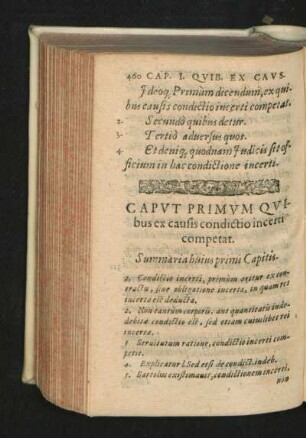 460 CAP. I. QVIB. EX CAVS.
Ideoq. Primùm dicendum, ex qui-
bus causis condictio incerti competat.
2. Secundò quibus detur.
3. Tertiò aduersus quos.
4. Et deniq, quodnam Iudicis sit of-
ficium in hac condictione incerti.
CAPVT PRIMVM QVI-
bus ex causis condictio incerti
competat.
Summaria huius primi Capitis.
1. Condictio incerti, primùm oritur ex con-
tractu, siue obligatione incerta, in quam res
incerta est deducta.
2. Non tantùm corporis, aut quantitatis inde-
debitæ condictio est, sed etiam cuiuslibet rei
incertæ.
3. Seruitutum ratione, condictio incerti com-
petit.
4. Explicatur l. Sed etsi de condict. indeb.
5. Bartolus existimauit, condictionem incerti,
non